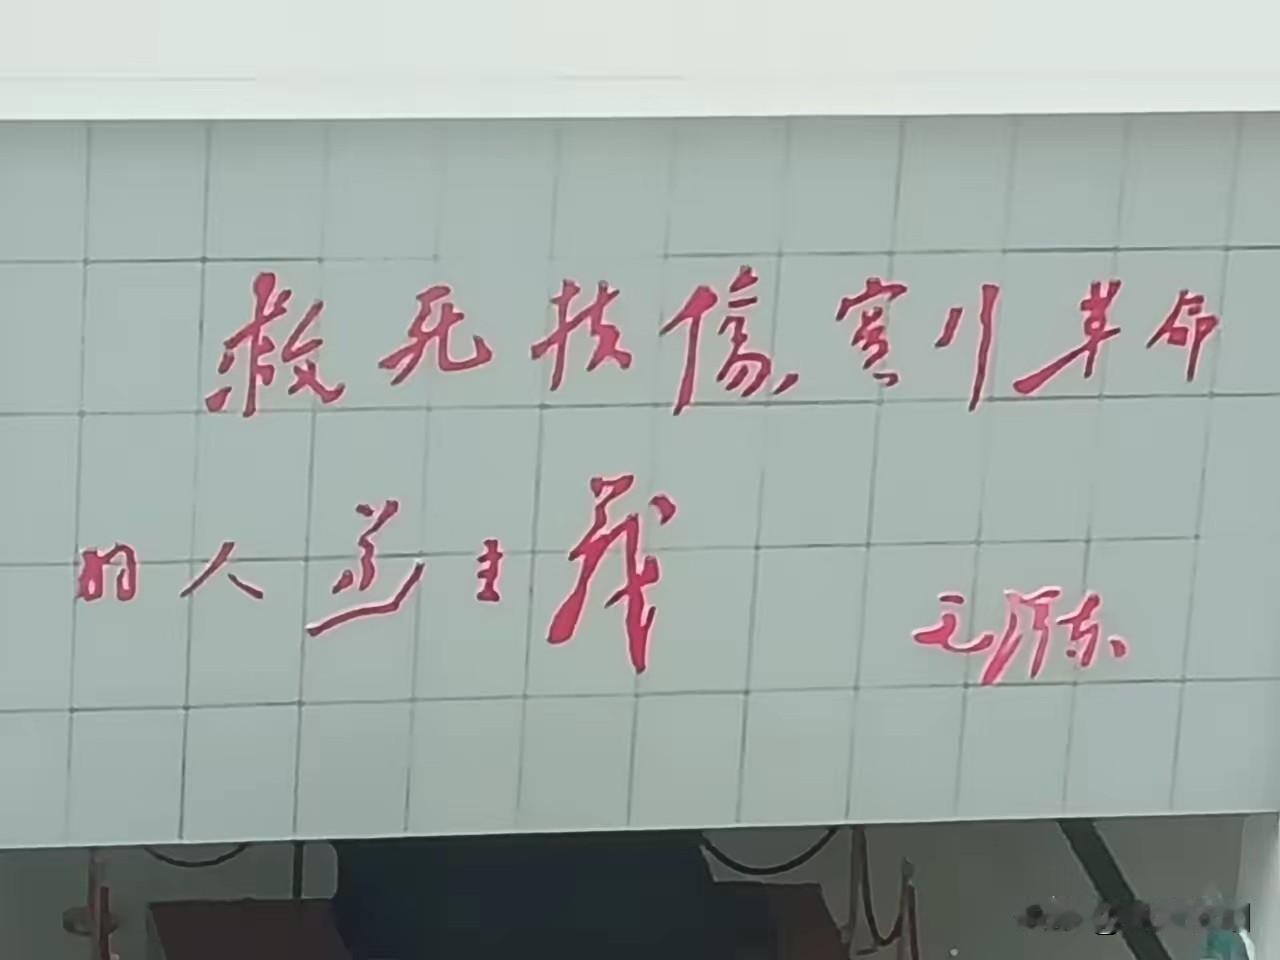 救死扶傷，实行革命
的人道主義
毛泽东